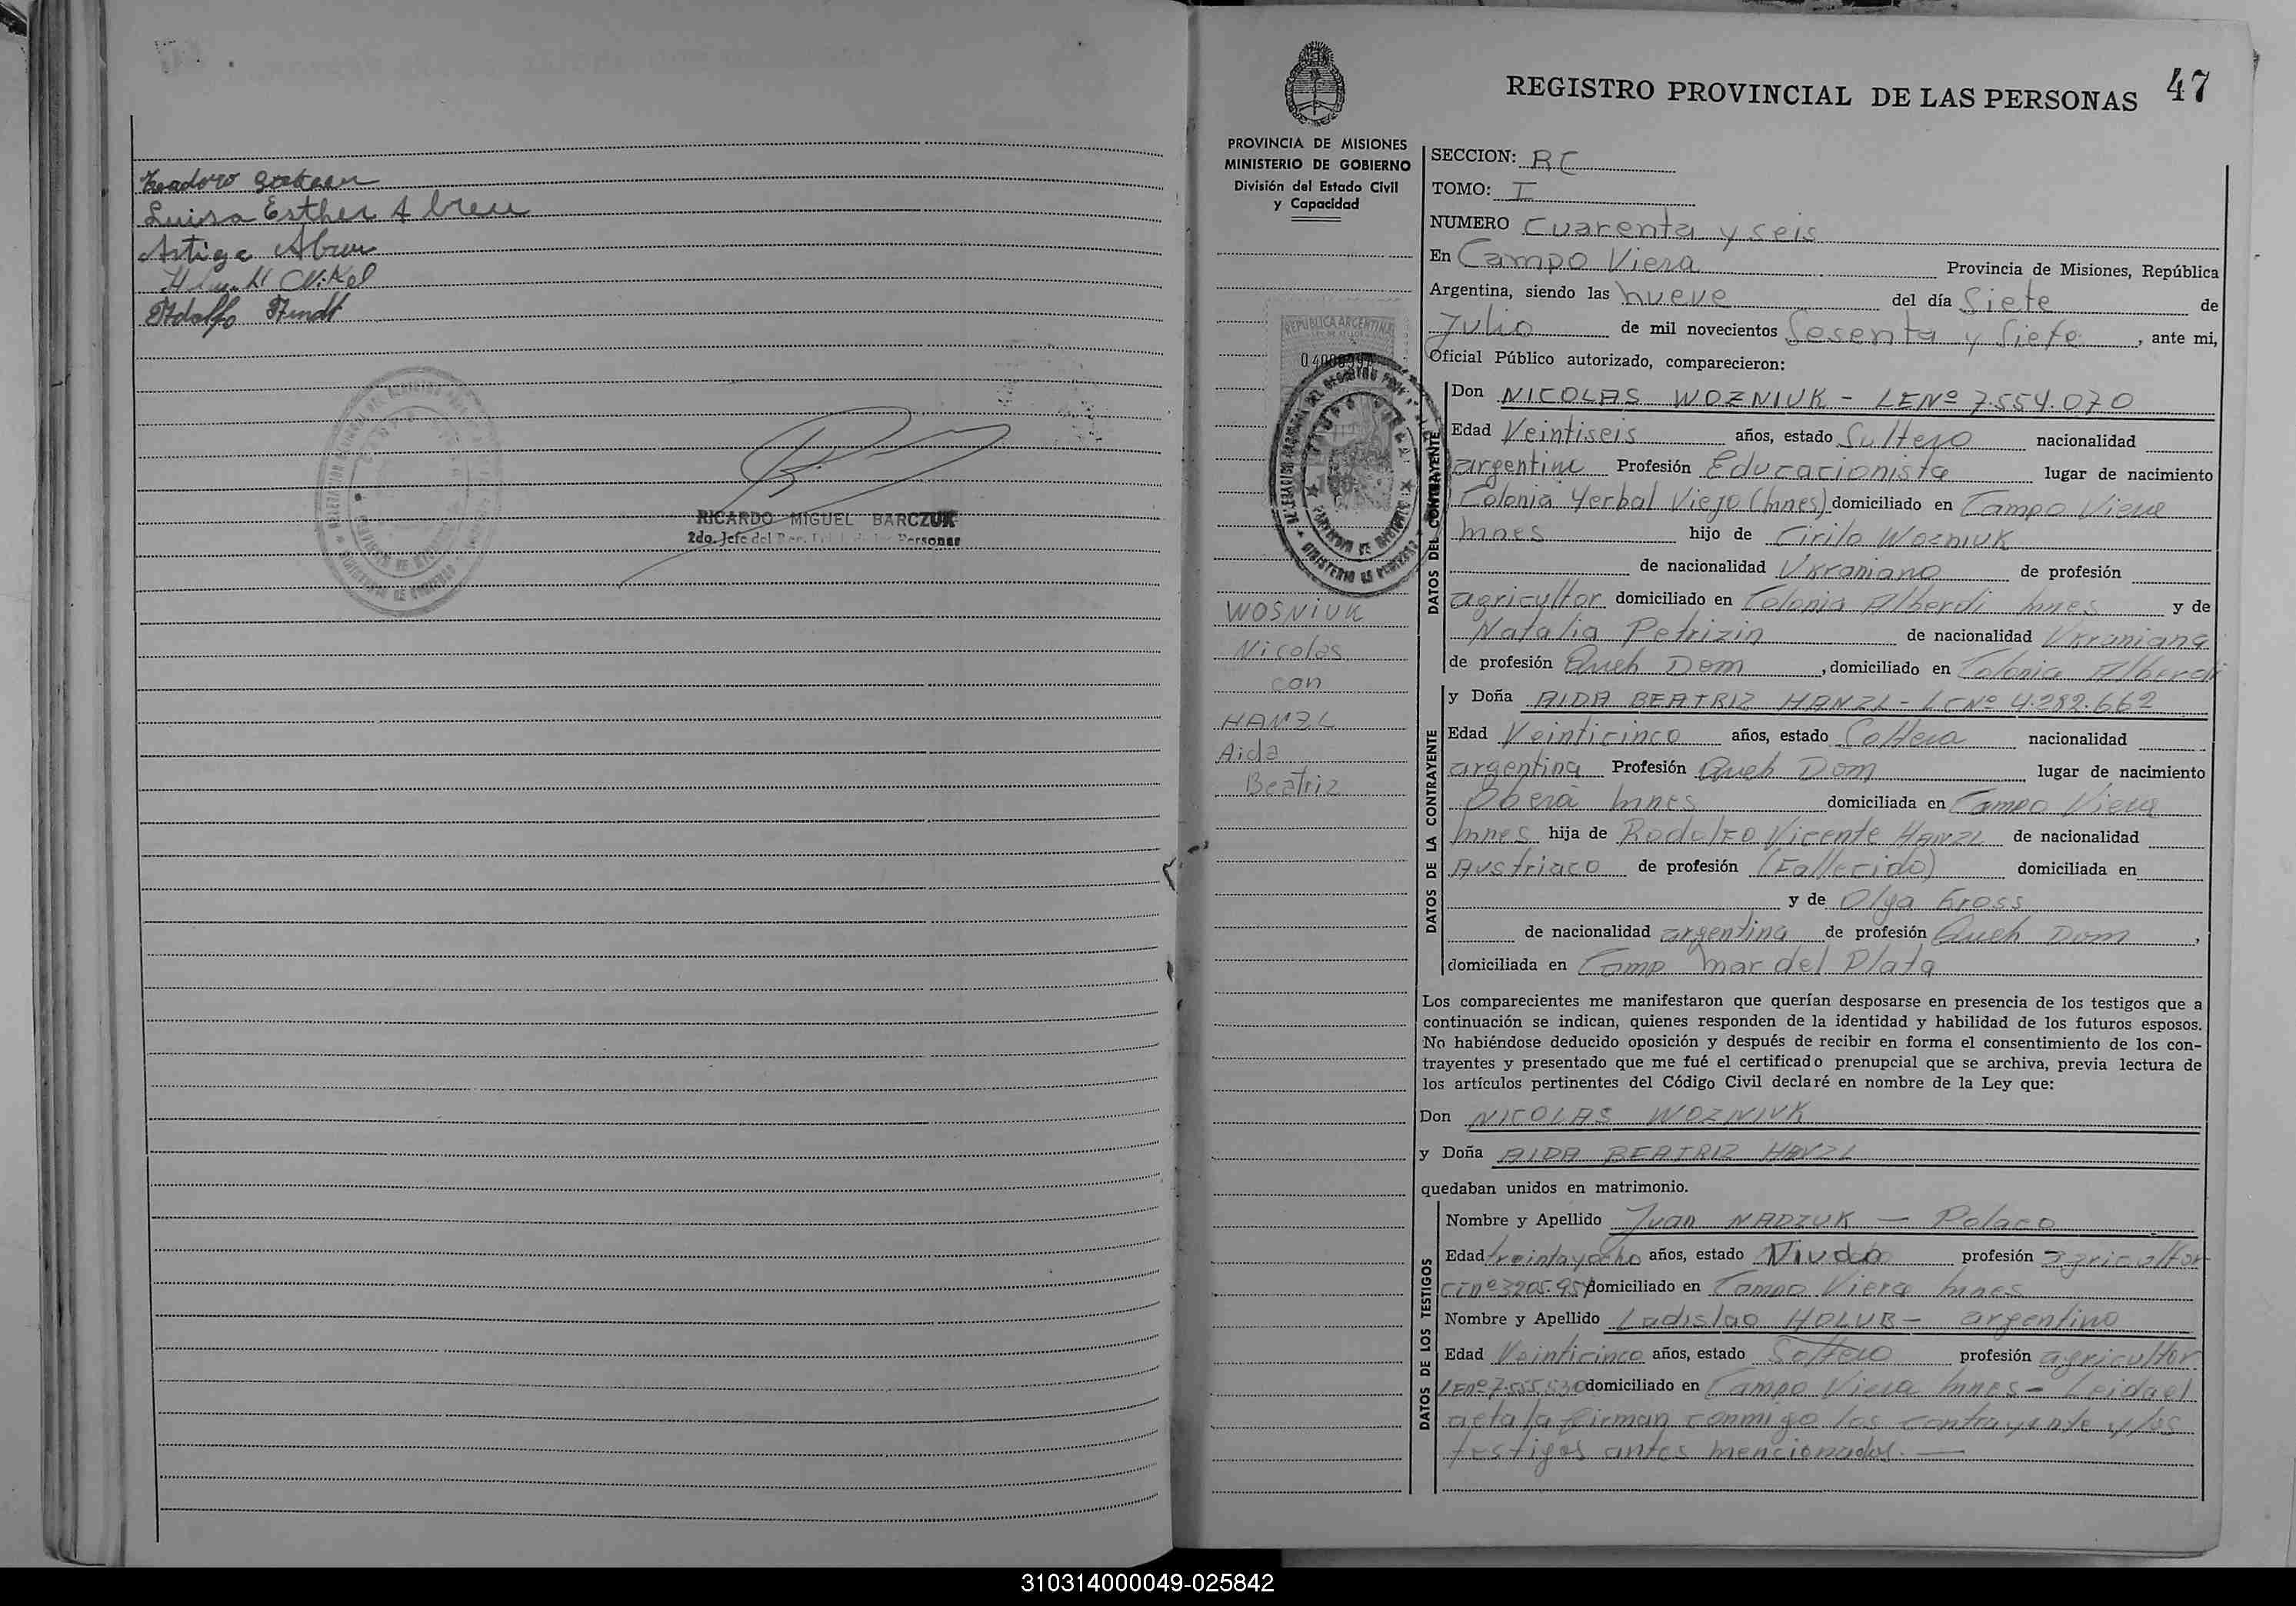 Luisa Esther Abreu
Artiga Abreu
Adolfo Arndt
RICARDO MIGUEL BARCZUK
2do. Jefe del Personas
REGISTRO PROVINCIAL DE LAS PERSONAS 47
PROVINCIA DE MISIONES
MINISTERIO DE GOBIERNO
División del Estado Civil
y Capacidad
REPUBLICA ARGENTINA
WOSNIUK
Nicolas
con
HANZL
Aida
Beatriz
SECCION: RC
TOMO: I
NUMERO Cuarenta y seis
En Campo Viera Provincia de Misiones, República
Argentina, siendo las nueve del día Siete de
Julio de mil novecientos Sesenta y Siete, ante mi,
Oficial Público autorizado, comparecieron:
DATOS DEL CONTRAYENTE
Don NICOLAS WOZNIUK - LENº 7.554.070
Edad Veintiseis años, estado Soltero nacionalidad
argentino Profesión Educacionista lugar de nacimiento
Colonia Yerbal Viejo (Mnes) domiciliado en Campo Viera
Mnes hijo de Cirilo Wozniuk
de nacionalidad Ukraniano de profesión
agricultor domiciliado en Colonia Alberdi Mnes y de
Natalia Petrizin de nacionalidad Ukraniana
de profesión Queh Dom, domiciliado en Colonia Alberdi
DATOS DE LA CONTRAYENTE
y Doña AIDA BEATRIZ HANZL - LCNº 4.292.662
Edad Veinticinco años, estado Soltera nacionalidad
argentina Profesión Queh Dom lugar de nacimiento
Oberá Mnes domiciliada en Campo Viera
Mnes hija de Rodolfo Vicente HANZL de nacionalidad
Austriaco de profesión (Fallecido) domiciliada en
y de Olga Kross
de nacionalidad argentina de profesión Queh Dom,
domiciliada en Camp Mar del Plata
Los comparecientes me manifestaron que querían desposarse en presencia de los testigos que a
continuación se indican, quienes responden de la identidad y habilidad de los futuros esposos.
No habiéndose deducido oposición y después de recibir en forma el consentimiento de los con-
trayentes y presentado que me fué el certificado prenupcial que se archiva, previa lectura de
los artículos pertinentes del Código Civil declaré en nombre de la Ley que:
Don NICOLAS WOZNIUK
y Doña AIDA BEATRIZ HANZL
quedaban unidos en matrimonio.
DATOS DE LOS TESTIGOS
Nombre y Apellido Juan NADZUK — Polaco
Edad treinta y ocho años, estado Viudo profesión agricultor
domiciliado en Campo Viera Mnes
Nombre y Apellido Ladislao HOLUB - argentino
Edad Veinticinco años, estado Soltero profesión agricultor
LENº 7.555.530 domiciliado en Campo Viera Mnes - Leida el
acta la firman conmigo los contrayente y los
testigos antes mencionados. —
310314000049-025842